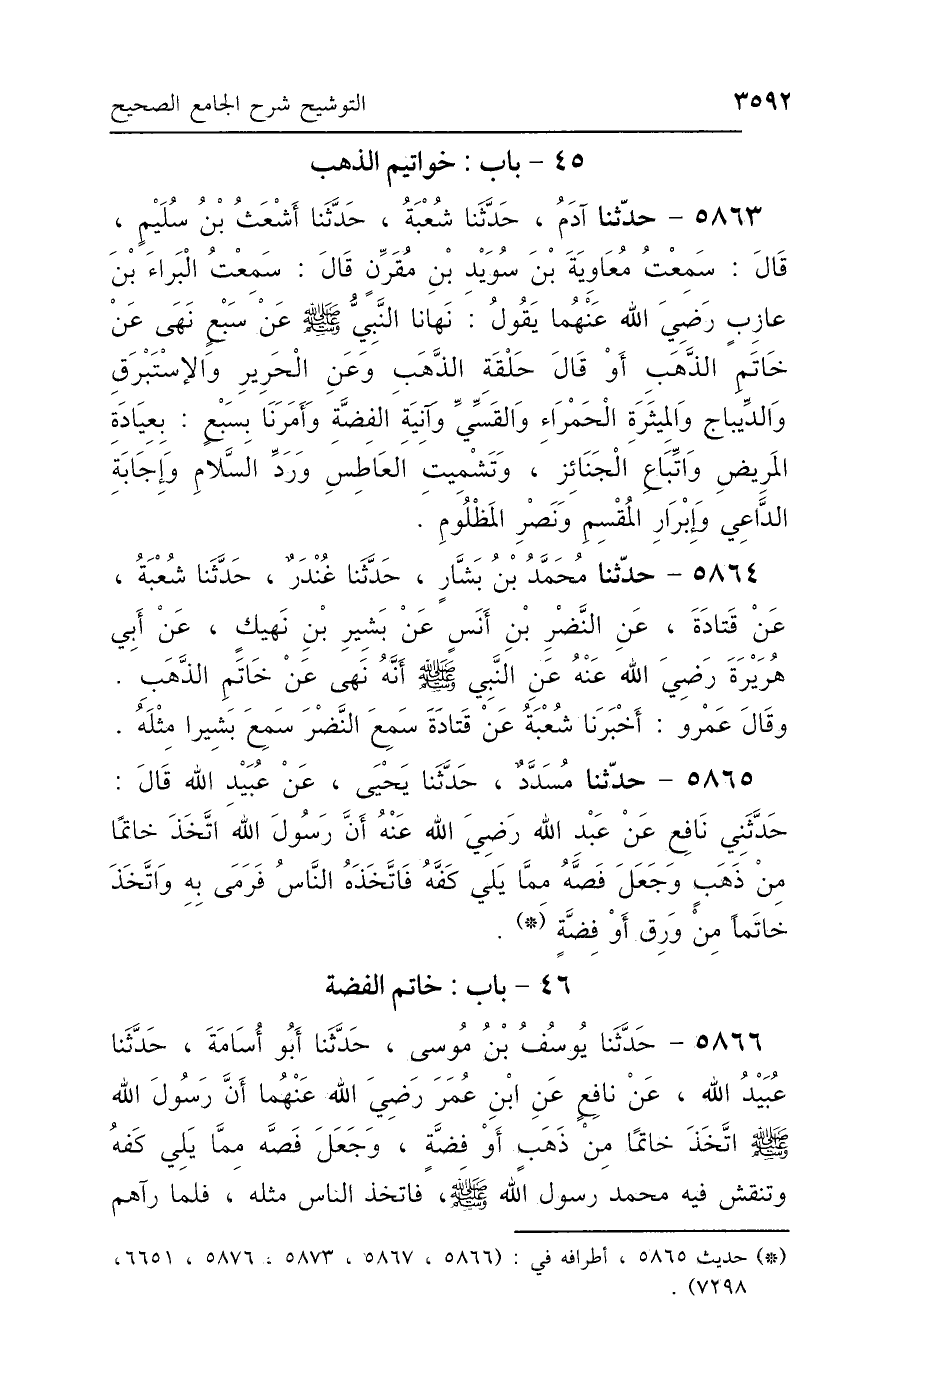 ٣٥٩٢ التوشيح شرح الجامع الصحيح
٤٥ - باب : خواتيم الذهب
٥٨٦٣ - حدّثنا آدَمُ ، حَدَّثَنا شُعْبَةُ ، حَدَّثَنا أَشْعَثُ بْنُ سليمٍ ،
قَالَ : سَمِعْتُ مُعَاوِيَةَ بْنَ سُوَيْدِ بْنِ مُقَرِّنٍ قَالَ : سَمِعْتُ الْبَراءَ بْنَ
عازِبٍ رَضِيَ الله عَنْهُما يَقُولُ : نَهانا النَّبِيُّ ﷺ عَنْ سَبْعٍ نَهَى عَنْ
خَاتَمِ الذَّهَبِ أَوْ قَالَ حَلْقَةِ الذَّهَبِ وعَنِ الْحَرِيرِ وَالإسْتَبْرَقِ
وَالدِّيباجِ وَالمِيثَرَةِ الْحَمْرَاءِ وَالقَسِّيِّ وَآنِيَةِ الفِضَّةِ وَأَمَرَنَا بِسَبْعٍ : بِعِيَادَةِ
المَرِيضِ وَاتِّبَاعِ الْجَنَائِزِ ، وَتَشْمِيتِ العَاطِسِ وَرَدِّ السَّلَامِ وَإِجَابَةِ
الدَّاعِي وَإِبْرَارِ المُقْسِمِ وَنَصْرِ المَظْلُومِ .
٥٨٦٤ - حدّثنا مُحَمَّدُ بْنُ بَشَّارٍ ، حَدَّثَنا غُنْدَرٌ ، حَدَّثَنا شُعْبَةُ ،
عَنْ قَتَادَةَ ، عَنِ النَّضْرِ بْنِ أَنَسٍ عَنْ بَشِيرِ بْنِ نَهِيكٍ ، عَنْ أَبِي
هُرَيْرَةَ رَضِيَ الله عَنْهُ عَنِ النَّبِي ﷺ أَنَّهُ نَهى عَنْ خَاتَمِ الذَّهَبِ .
وقَالَ عَمْرو : أَخْبَرَنا شُعْبَةُ عَنْ قتادَةَ سَمِعَ النَّضْرَ سَمِعَ بَشيرا مِثْلَهُ .
٥٨٦٥ - حدّثنا مُسَدَّدٌ ، حَدَّثَنا يَحْيَى ، عَنْ عُبَيْدِ الله قَالَ :
حَدَّثَنِي نَافِع عَنْ عَبْدِ الله رَضِيَ الله عَنْهُ أَنَّ رَسُولَ الله اتَّخَذَ خاتمًا
مِنْ ذَهَبٍ وَجَعَلَ فَصَّهُ مِمَّا يَلي كَفَّهُ فَاتَّخَذَه النَّاسُ فَرَمَى بِهِ وَاتَّخَذَ
خاتَماً مِنْ وَرِقٍ أَوْ فِضَّةٍ (*) .
٤٦ - باب : خاتم الفضة
٥٨٦٦ - حَدَّثَنا يُوسُفُ بْنُ مُوسى ، حَدَّثَنا أَبُو أُسَامَةَ ، حَدَّثَنا
عُبَيْدُ الله ، عَنْ نافِعٍ عَنِ ابْنِ عُمَرَ رَضِيَ الله عَنْهُما أَنَّ رَسُولَ الله
ﷺ اتَّخَذَ خاتمًا مِنْ ذَهَبٍ أَوْ فِضَّةٍ ، وَجَعَلَ فَصَّه مِمَّا يَلي كَفهُ
وتنقش فيه محمد رسول الله ﷺ، فاتخذ الناس مثله ، فلما رآهم
(*) حديث ٥٨٦٥ ، أطرافه في : (٥٨٦٦ ، ٥٨٦٧ ، ٥٨٧٣ ، ٥٨٧٦ ، ٦٦٥١،
٧٢٩٨) .